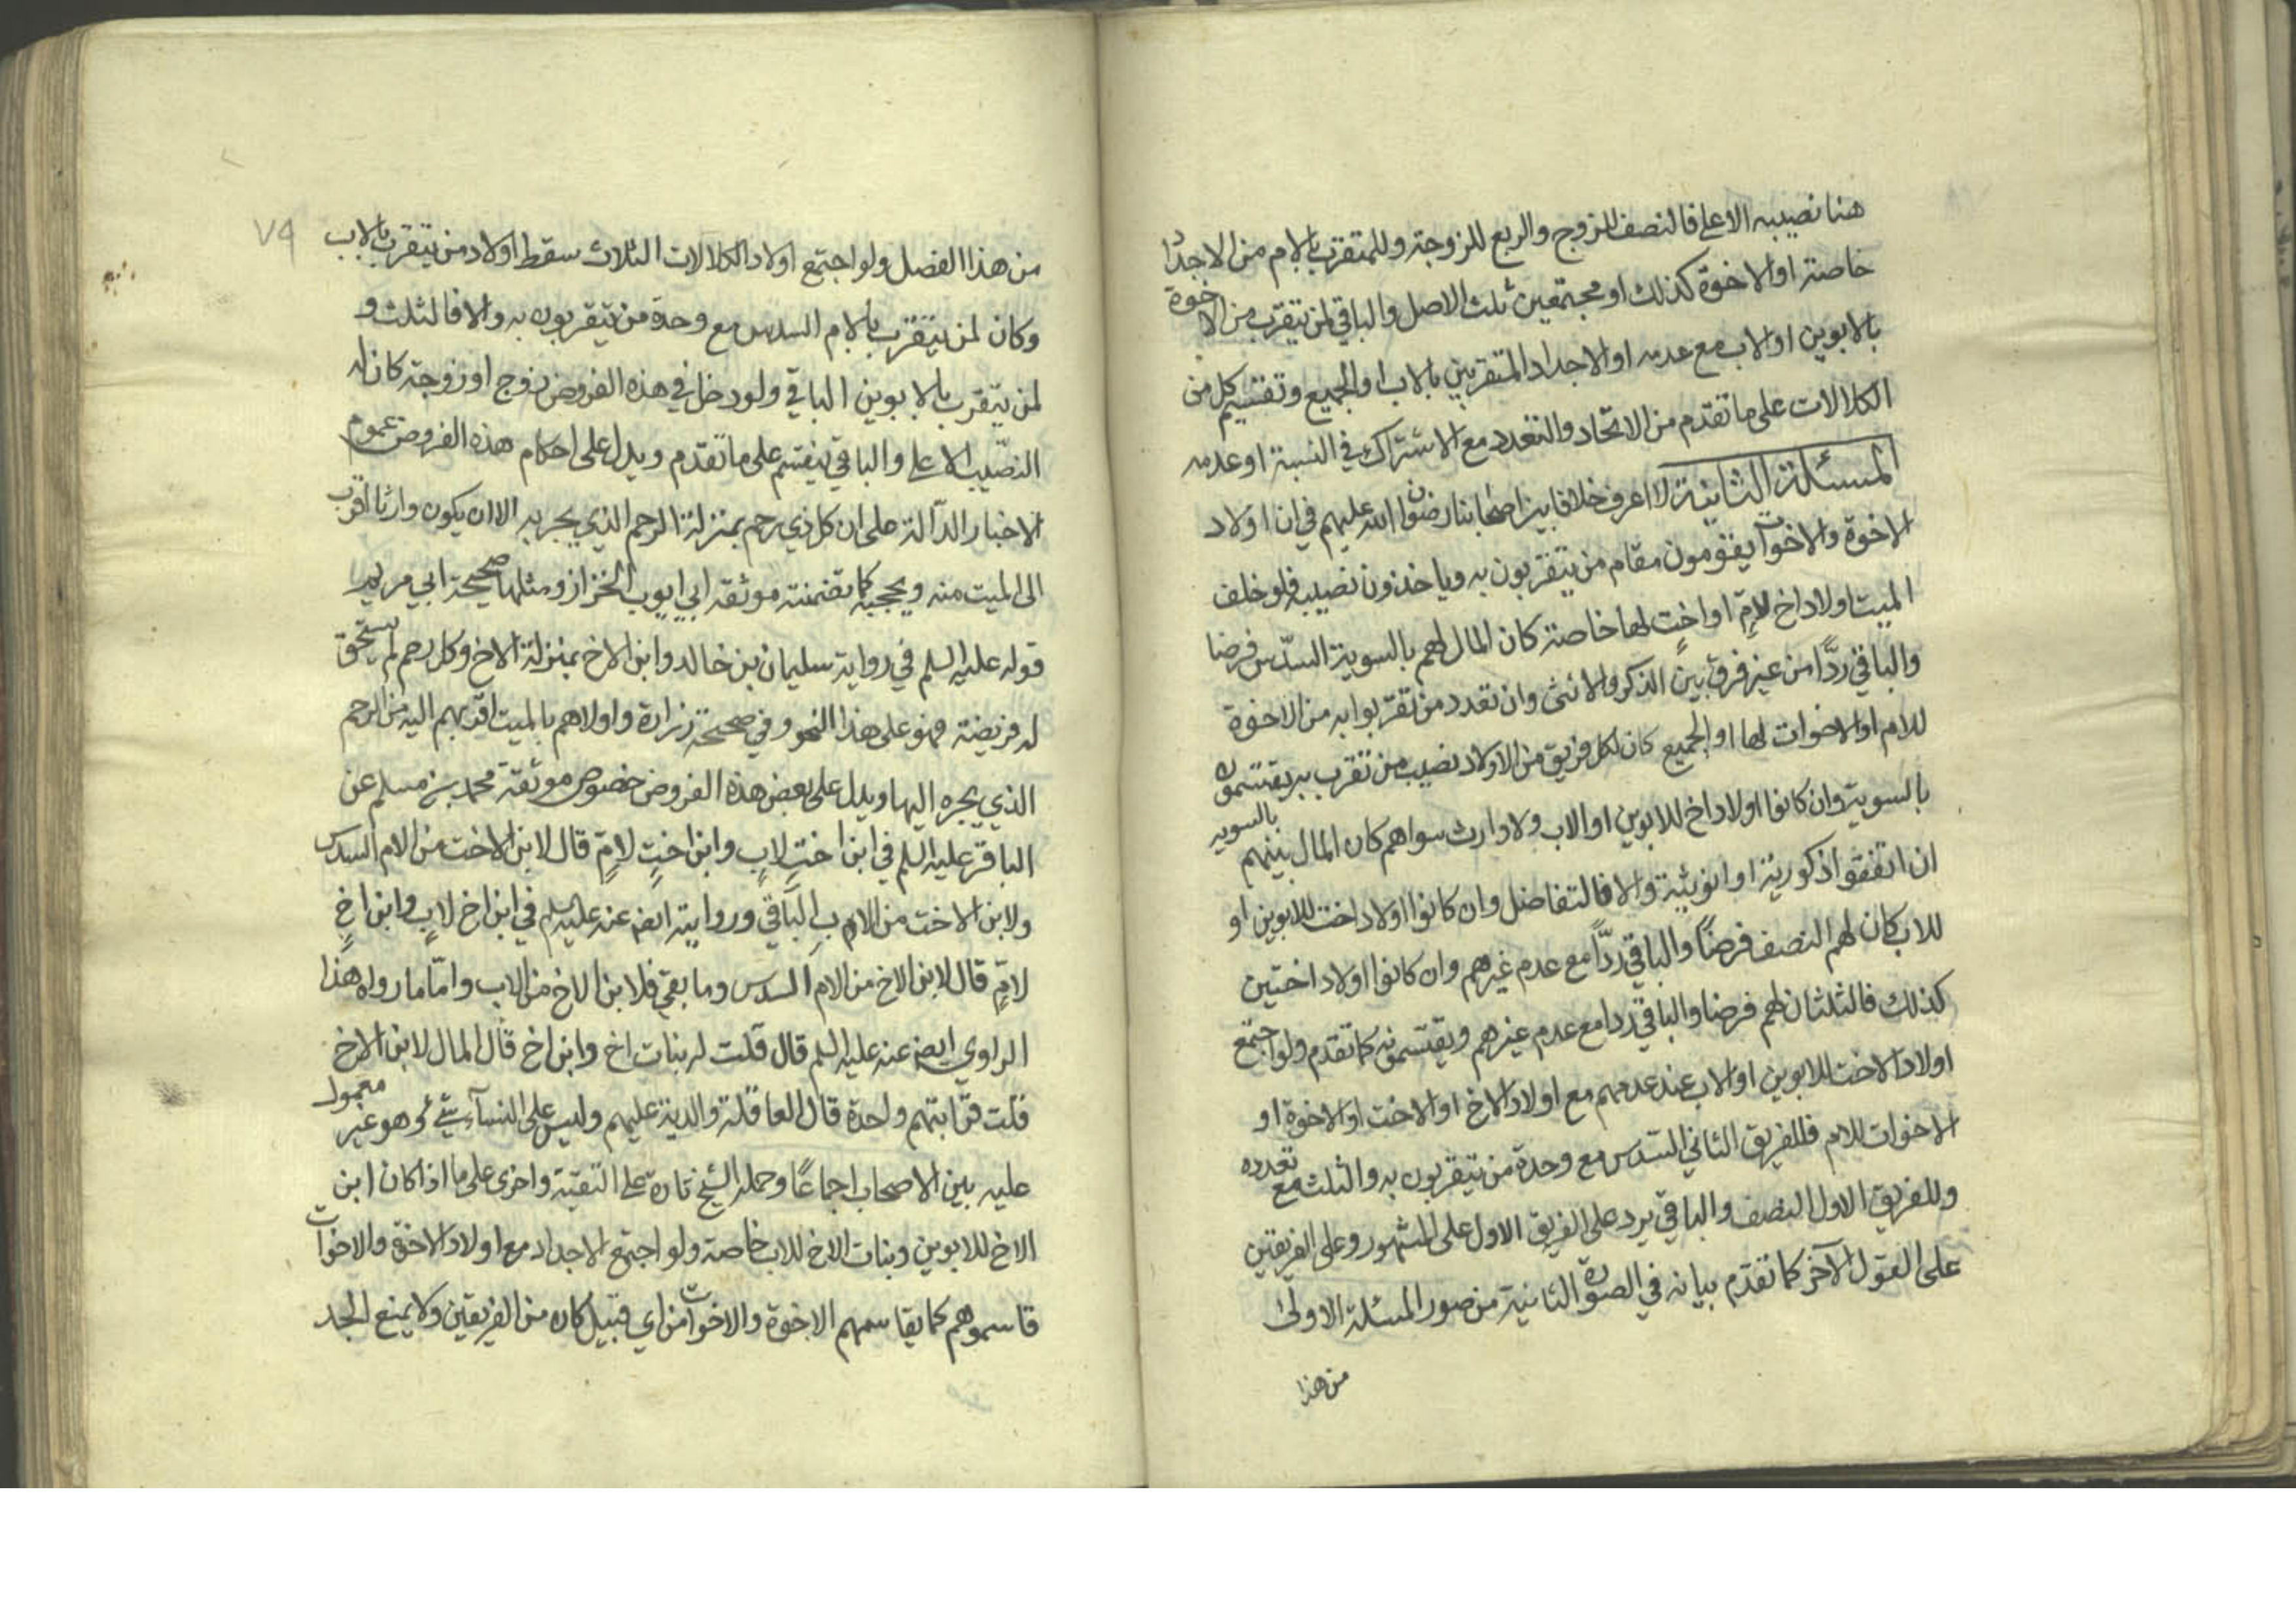 هنا نصيبه الاعلى فالنصف للزوج والربع للزوجة وللمتقرب بالام من الاجداد
خاصة او الاخوة كذلك او مجتمعين ثلث الاصل والباقي لمن يتقرب من الاخوة
بالابوين او الاب مع عدمه او الاجداد المتقربين بالاب او الجميع وتقتسم كل من
الكلالات على ما تقدم من الاتحاد والتعدد مع الاشتراك في النسبة او عدمه
المسئلة الثانية لا اعرف خلافا بين اصحابنا رضوان الله عليهم في ان اولاد
الاخوة والاخوات يقومون مقام من يتقربون به وياخذون نصيبه فلو خلف
الميت اولاد اخ لامٍّ او اختٍ لها خاصة كان المال لهم بالسوية السدس فرضا
والباقي ردًّا من غير فرق بين الذكر والانثى وان تعدد من تقربوا به من الاخوة
للام او الاخوات لها او الجميع كان لكل فريق من الاولاد نصيب من تقرب به يقتسمونه
بالسوية وان كانوا اولاد اخ للابوين او الاب ولا وارث سواهم كان المال بينهم بالسويه
ان اتفقوا ذكورية او انوثية والا فالتفاضل وان كانوا اولاد اخت للابوين او
للاب كان لهم النصف فرضاً والباقي ردّاً مع عدم غيرهم وان كانوا اولاد اختين
كذلك فالثلثان لهم فرضا والباقي ردا مع عدم غيرهم ويقتسمونه كما تقدم ولو اجتمع
اولاد الاخت للابوين او الاب عند عدمهم مع اولاد الاخ او الاخت او الاخوة او
الاخوات للام فللفريق الثاني السدس مع وحدة من يتقربون به والثلث مع تعدده
وللفريق الاول النصف والباقي يرد على الفريق الاول على المشهور وعلى الفريقين
على القول الآخر كما تقدم بيانه في الصورة الثانية من صور المسئلة الاولى
من هذا
٧٩
من هذا الفصل ولو اجتمع اولاد الكلالات الثلاث سقط اولاد من يتقرب بالاب
وكان لمن يتقرب بالام السدس مع وحدة من يتقربون به والا فالثلث و
لمن يتقرب بالابوين الباقي ولو دخل في هذه الفروض زوج او زوجة كان له
النصيب الاعلى والباقي يقتسم على ما تقدم ويدل على احكام هذه الفروض عموم
الاخبار الدآلة على ان كل ذي رحم بمنزلة الرحم الذي يجر به الا ان يكون وارثا اقرب
الى الميت منه ويحجبه كما تضمنته موثقة ابي ايوب الخزاز ومثلها صحيحة ابي مريم
قوله عليه السلم في رواية سليمان بن خالد وابن الاخ بمنزلة الاخ وكل رحم لم يستحق
له فريضة فهو على هذا النحو وفي صحيحة زرارة واولاهم بالميت اقربهم اليه من الرحم
الذي يجره اليها ويدل على بعض هذة الفروض خصوص موثقة محمد بن مسلم عن
الباقر عليه السلم في ابن اختٍ لابٍ وابن اختٍ لامٍّ قال لابن الاخت من الام السدس
ولابن الاخت من الاب الباقي ورواية ايضا عنه عليه السلم في ابن اخ لابٍ وابن اخٍ
لامٍّ قال لابن الاخ من الام السدس وما بقي فلابن الاخ من الاب وامّا ما رواه هذا
الراوي ايضا عنه عليه السلم قال قلت له بنات اخ وابن اخ قال المال لابن الاخ
قلت قرابتهم واحدة قال العاقلة والدية عليهم وليس على النسآء شيء وهو غير معمول
عليه بين الاصحاب اجماعًا وحمله الشيخ تارة على التقية واخرى على ما اذا كان ابن
الاخ للابوين وبنات الاخ للاب خاصة ولو اجتمع الاجداد مع اولاد الاخوة والاخوات
قاسموهم كما يقاسمهم الاخوة والاخوات من اي قبيل كان من الفريقين ولا يمنع الجد